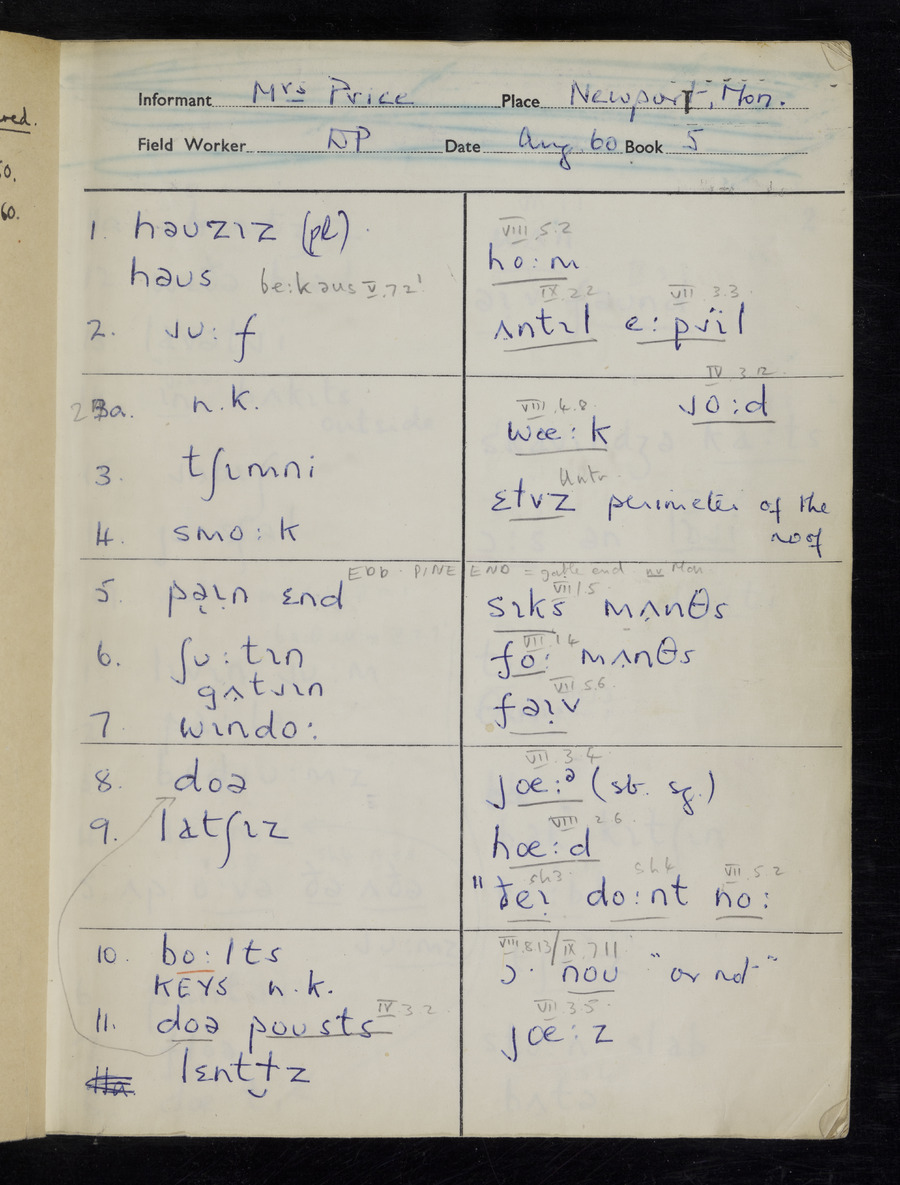 red.
60.
Informant Mrs Price Place Newport, Mon.
Field Worker DP Date Aug 60 Book 5
1. həʊzɪz (pl)
həʊs be:kəʊs V.7.2¹
2. ɹu:f
n.k.
3. tʃɪmni
4. smo:k
EDD. PINE END = gable end nv Mon
5. pəɪn ɛnd
6. ʃu:tɪn
gʌtɹɪn
7 wɪndo:
8. doə
9. latʃɪz
10. bo:lts
KEYS n.k.
11. doə poʊsts IV.3.2
11a. lɛntɫz
VIII.5.2
ho:m
IX.2.2 VII.3.3
ʌntɪl e:pɹïl
IV.3.12
ɹo:d
VIII.4.8.
wœ:k
Untr.
ɛtvz perimeter of the
roof
VII.1.5
sɪks mʌnθs
VII.1.4
fo: mʌnθs
VII.5.6
fəɪv
VII.3.4
jœ:ə (sb. sg.)
VIII.2.6
hœ:d
sh3 sh4 VII.5.2
"ðeɪ do:nt no:
VIII.8.13/IX.7.11
ɔ· noʊ "or not"
VII.3.5
jœ:z